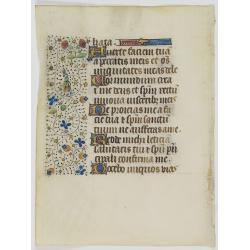 hata.
Auerte faciem tua
a peccatis meis et oes
iniquitates meas dele
Cor mundum crea
i me deus et spm rectu
innoua in uiscerib; meis
Ne proicias me a fa
cie tua et spm sanctu
tuum ne auferas a me
Redde michi leticia
salutaris tui et spu pn
cipali confirma me.
Docebo iniquos uias